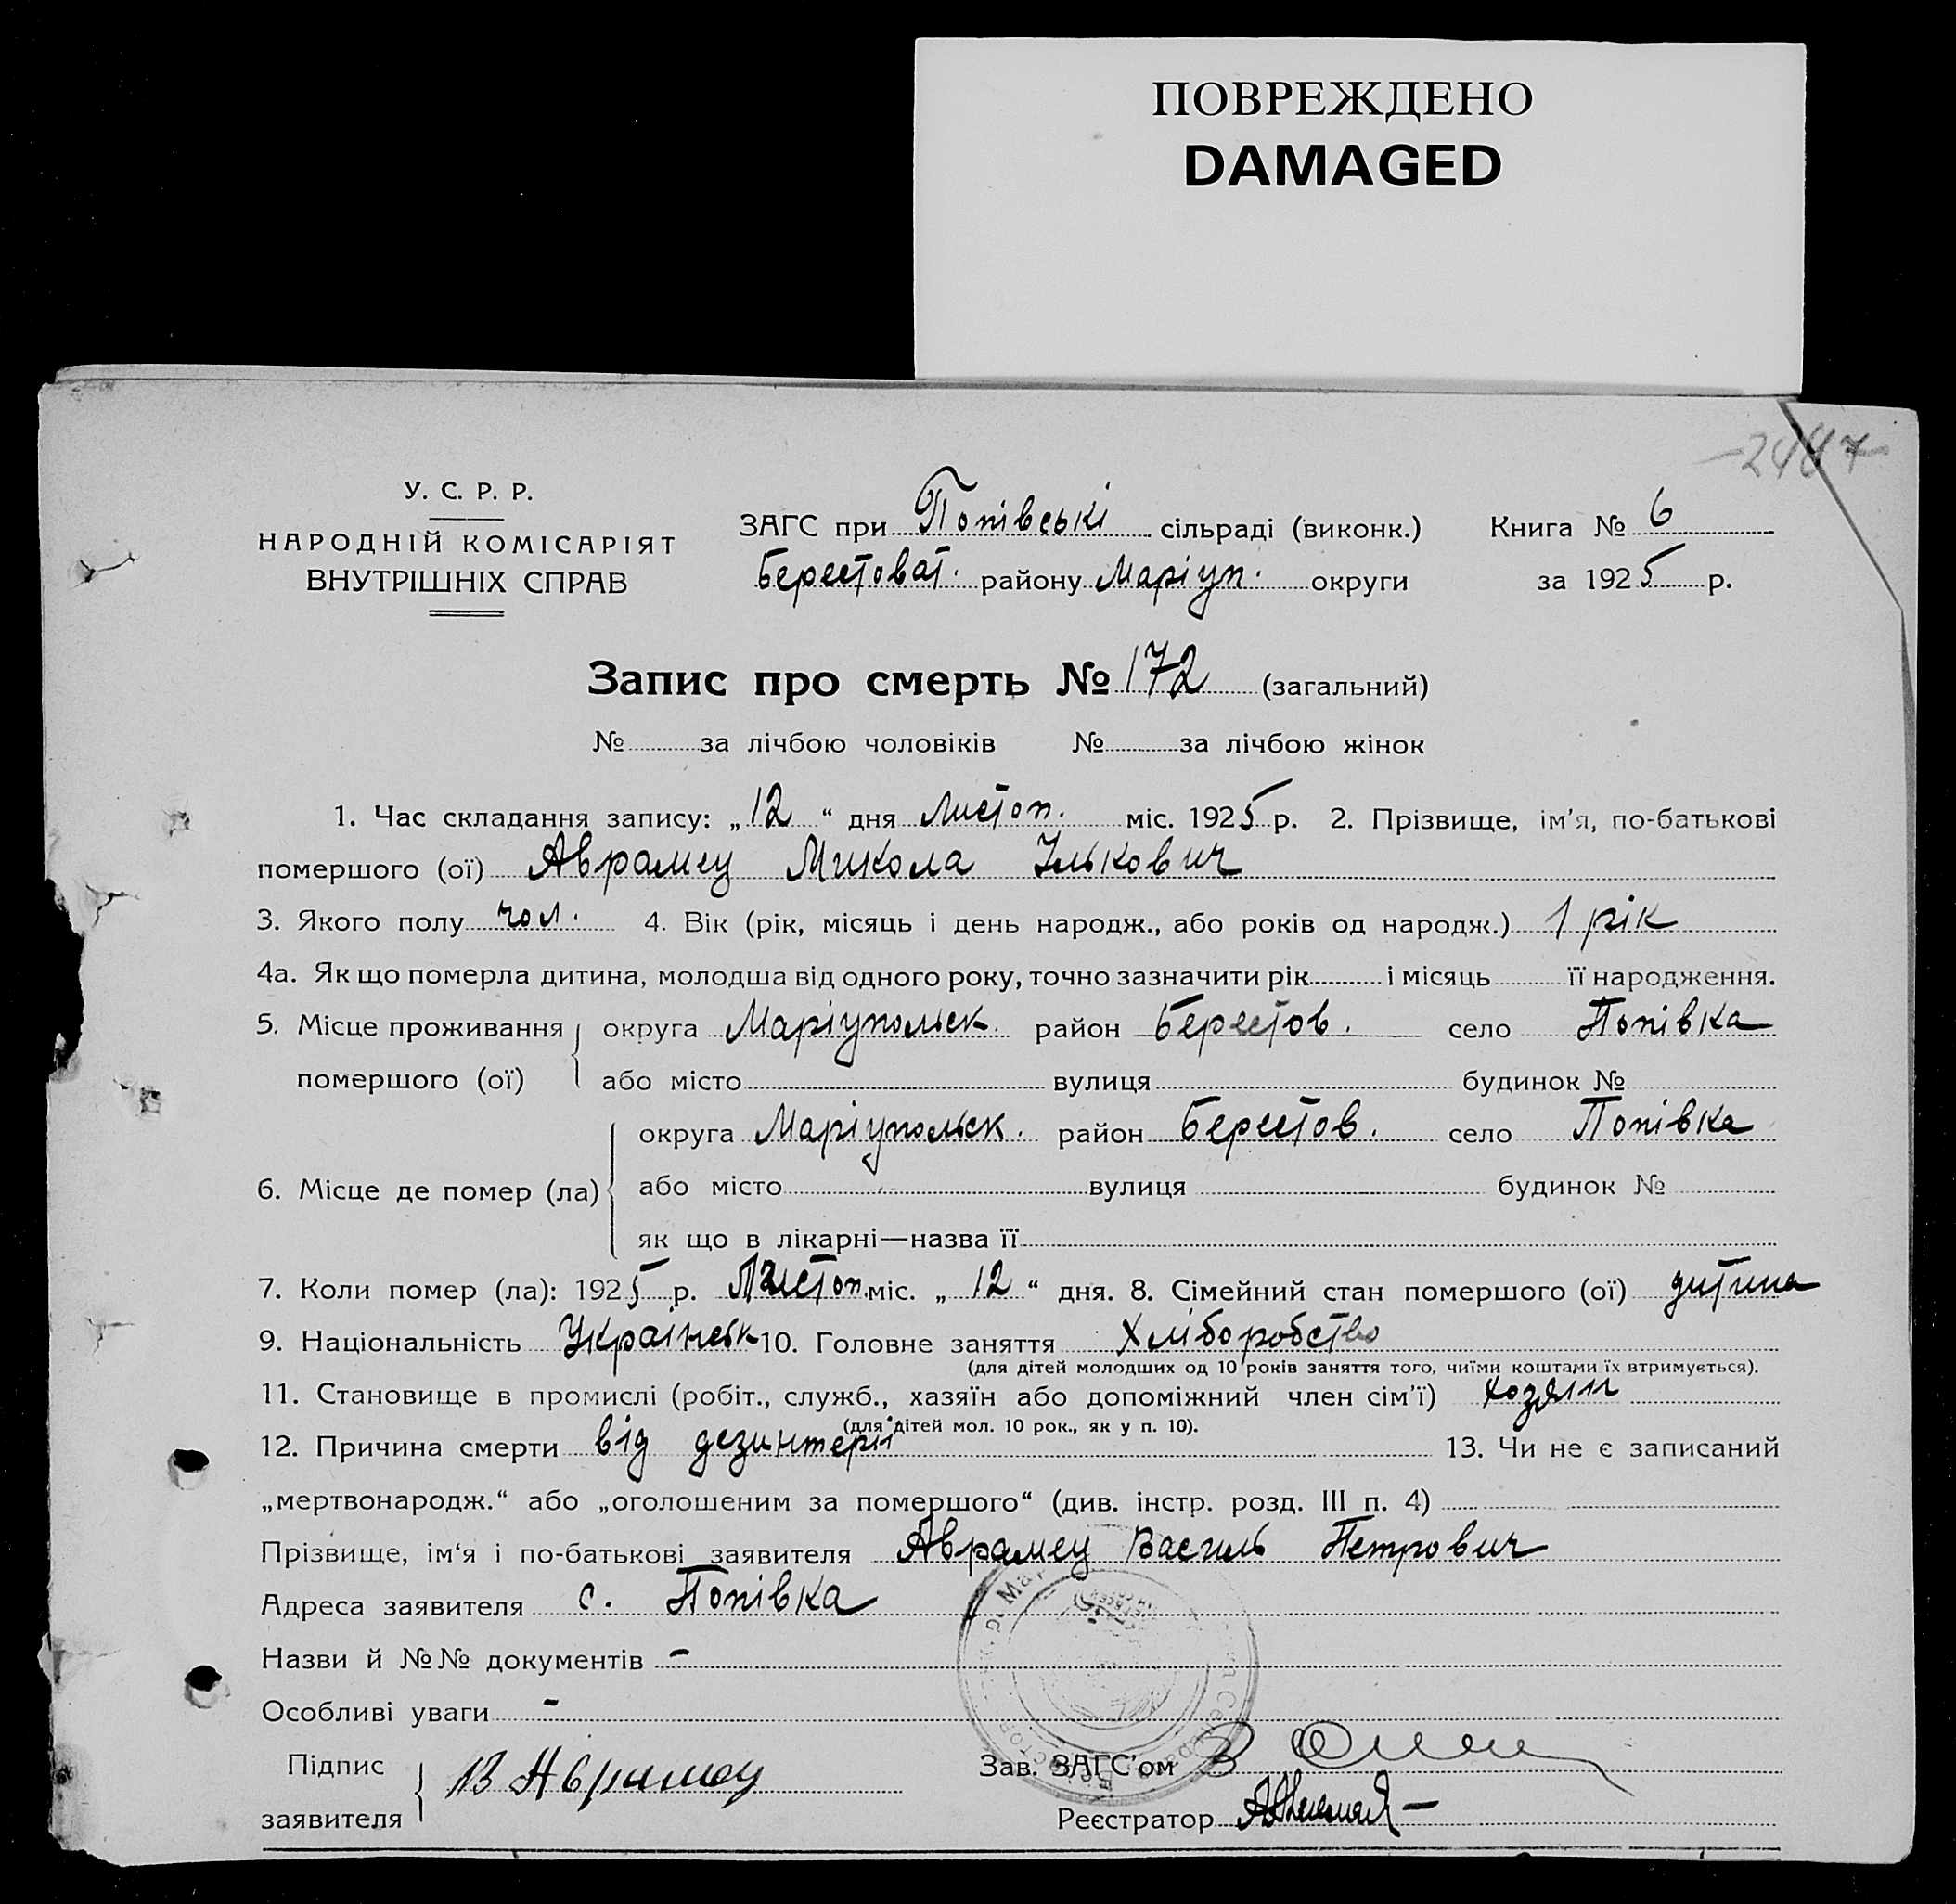 ПОВРЕЖДЕНО
DAMAGED
У. С. Р. Р.
НАРОДНІЙ КОМІСАРІЯТ
ВНУТРІШНІХ СПРАВ
ЗАГС при Попівські сільраді (виконк.) Книга № 6
Берестоват. району Маріуп. округи за 1925 р.
Запис про смерть № 172 (загальний)
№ за лічбою чоловіків № за лічбою жінок
1. Час складання запису: „12“ дня Листоп. міс. 1925 р. 2. Прізвище, ім'я, по-батькові
помершого (ої) Аврамец Микола Ількович
3. Якого полу чол. 4. Вік (рік, місяць і день народж., або років од народж.) 1 рік
4а. Як що померла дитина, молодша від одного року, точно зазначити рік і місяць її народження.
5. Місце проживання округа Маріупольск. район Берестов. село Попівка
помершого (ої) або місто вулиця будинок №
округа Маріупольск. район Берестов. село Попівка
6. Місце де помер (ла) або місто вулиця будинок №
як що в лікарні—назва її
7. Коли помер (ла): 1925 р. Листоп. міс. „12“ дня. 8. Сімейний стан помершого (ої) дитина
9. Національність Українськ 10. Головне заняття Хліборобство
(для дітей молодших од 10 років заняття того, чиїми коштами їх втримується).
11. Становище в промислі (робіт., служб., хазяїн або допоміжний член сім'ї) хозяин
(для дітей мол. 10 рок., як у п. 10).
12. Причина смерти від дезинтерії 13. Чи не є записаний
„мертвонародж.“ або „оголошеним за помершого“ (див. інстр. розд. III п. 4)
Прізвище, ім'я і по-батькові заявителя Аврамец Василь Петрович
Адреса заявителя с. Попівка
Назви й №№ документів -
Особливі уваги -
Підпис заявителя В Аврамец
Зав. ЗАГС'ом
Реєстратор